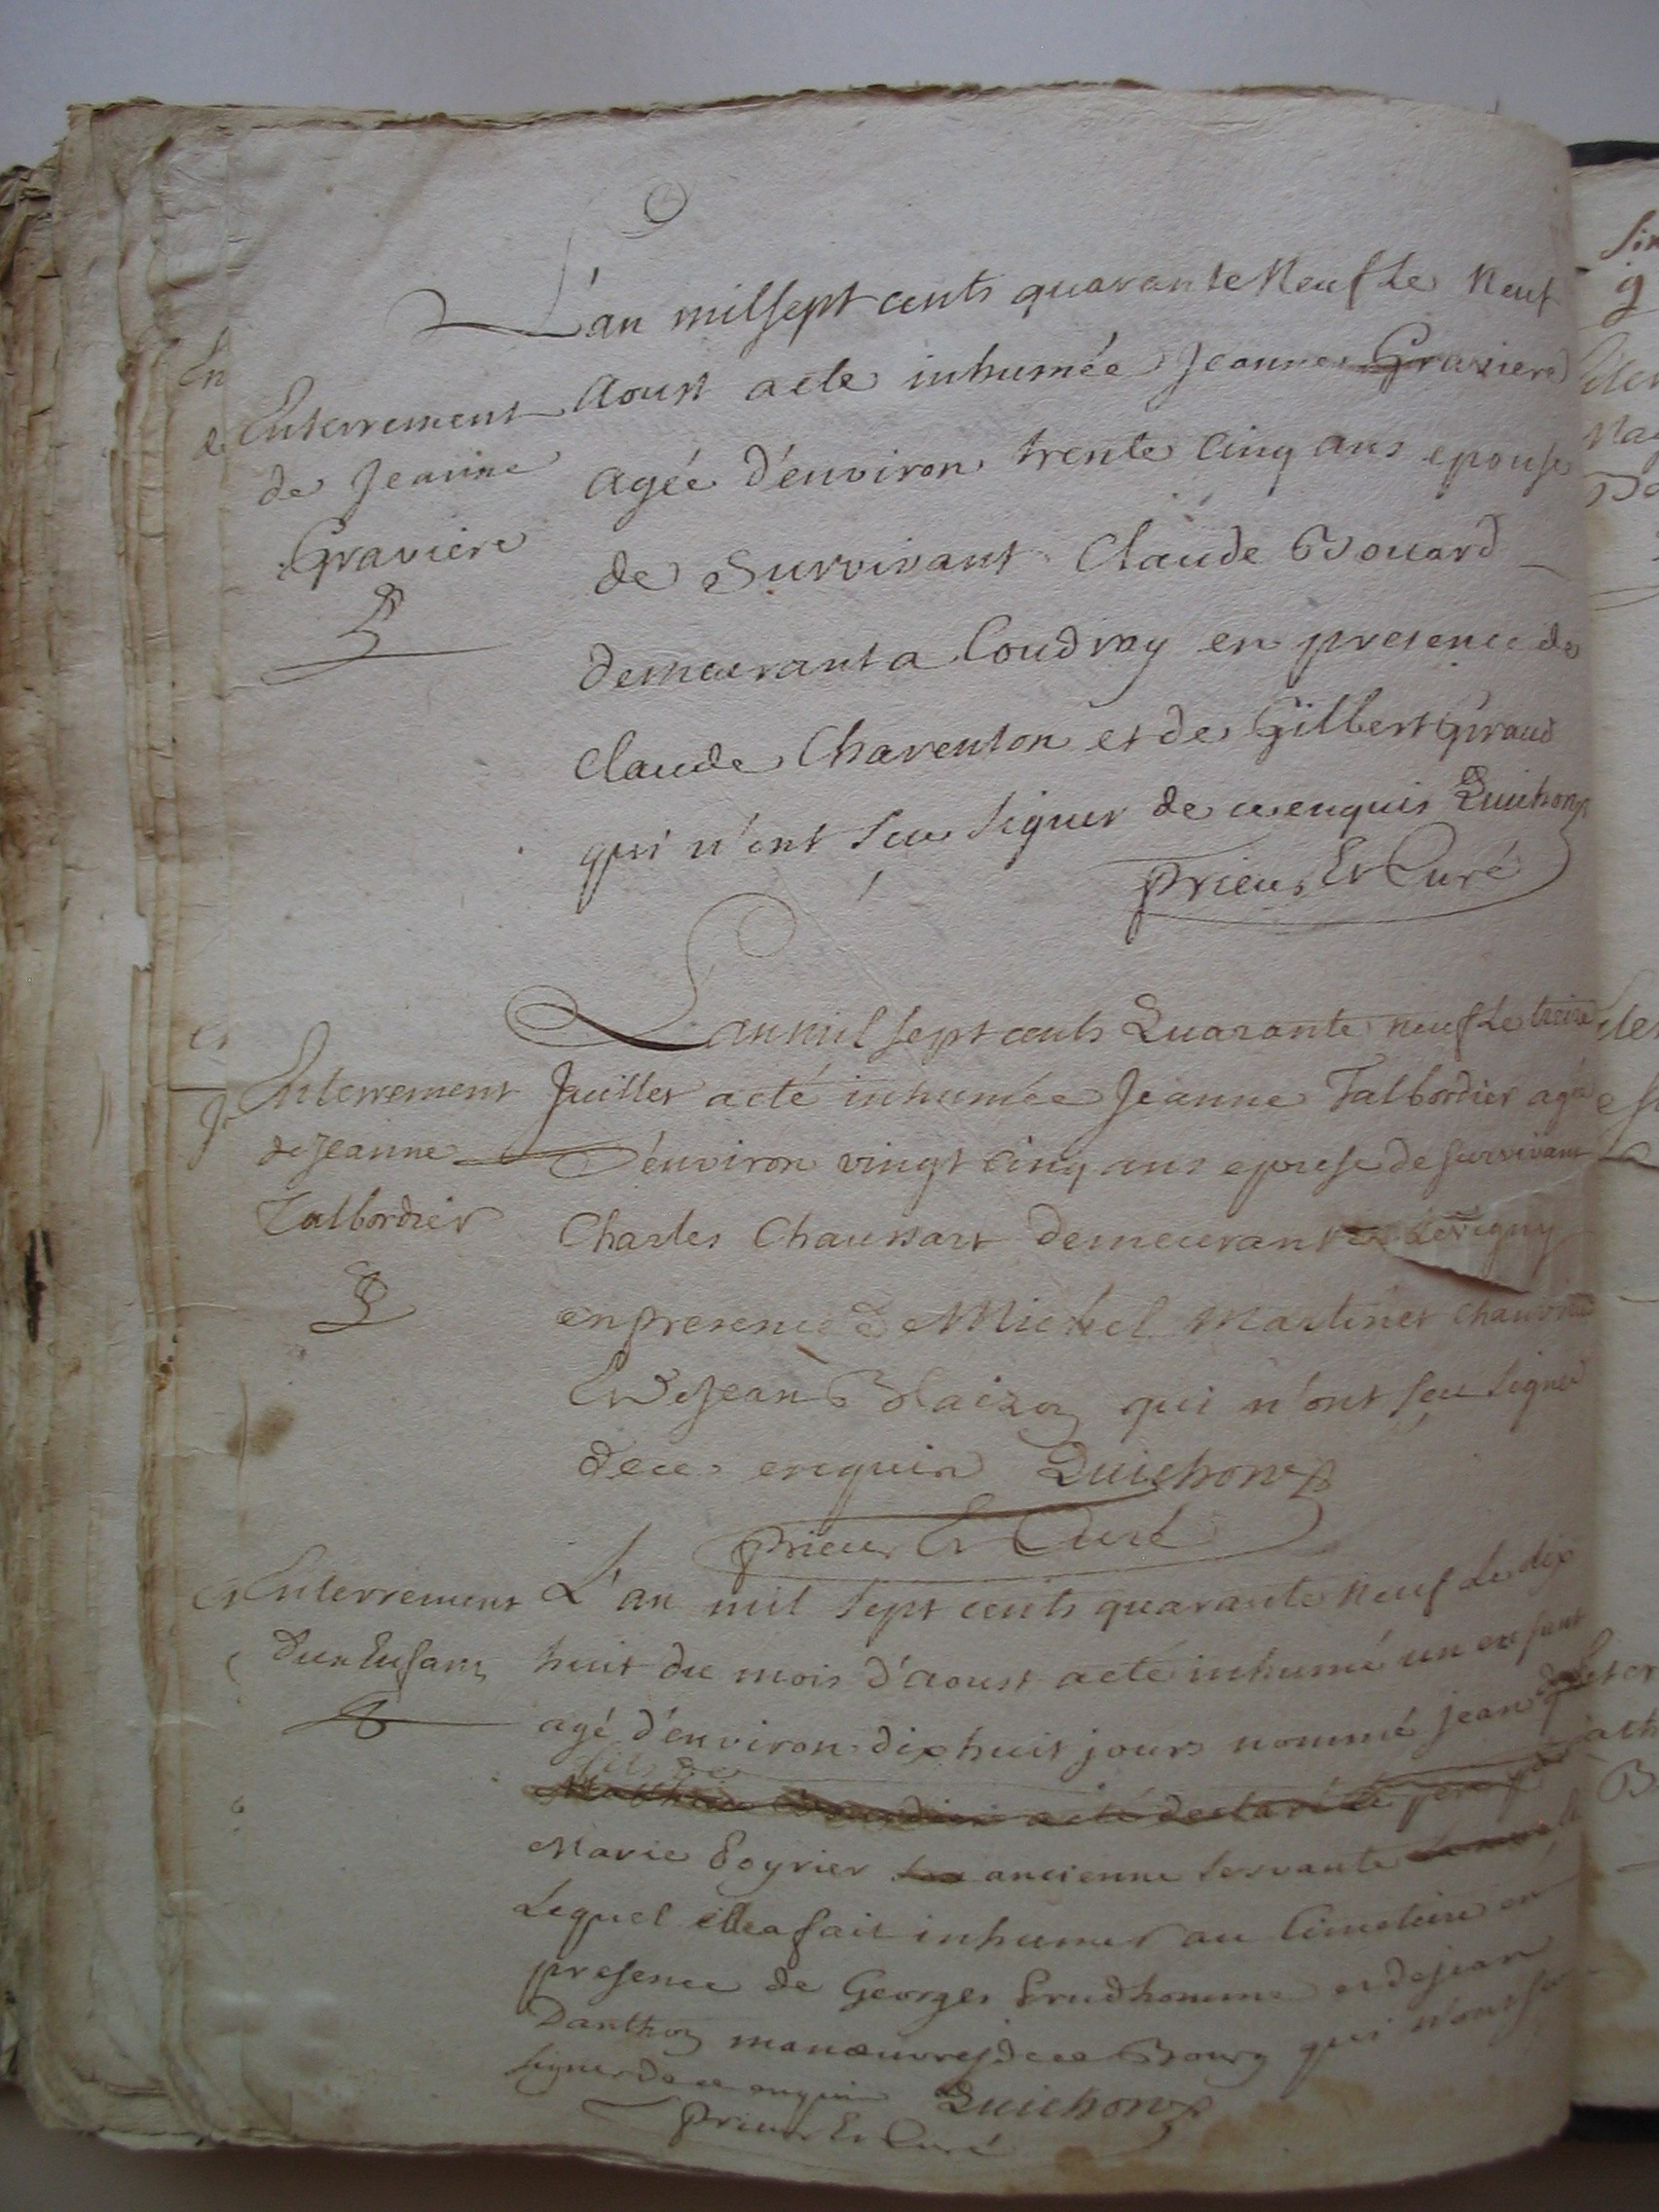 L'an mil sept cents quarante Neuf Le Neuf
Enterrement
de Jeanne
Graviere
Aoust a ete inhumée Jeanne Graviere
Agée d'environ trente Cinq ans epouse
de Survivant Claude Bouard
demeurant a Coudray en presence de
Claude Charenton et de Gilbert Giraud
qui n'ont sceu signer de ce enquis Quichon
Prieur Et Curé
L'an mil sept cents Quarante neuf Le treize
Enterrement
de Jeanne
Talbordier
Juillet a eté inhumée Jeanne Talbordier agée
D'environ vingt Cinq ans epouse de survivant
Charles Chaussart demeurant
en presence de Michel Martinet
Et de Jean Blaizon qui n'ont sçeu signer
de ce enquis Quichon
Prieur Et Curé
Enterrement
d'un Enfant
L'an mil sept cents quarante Neuf Le dix
huit du mois d'Aoust a eté inhumé un enfant
agé d'environ dix huit jours nommé Jean
fils de
a eté declaré pere par
Marie Poyrier ancienne servante
Lequel elle a fait inhumer au Cimetiere en
presence de Georges Prudhomme et de Jean
Danthon manœuvres de ce Bourg qui n'ont sçu
signer de ce enquis Quichon
Prieur Et Curé